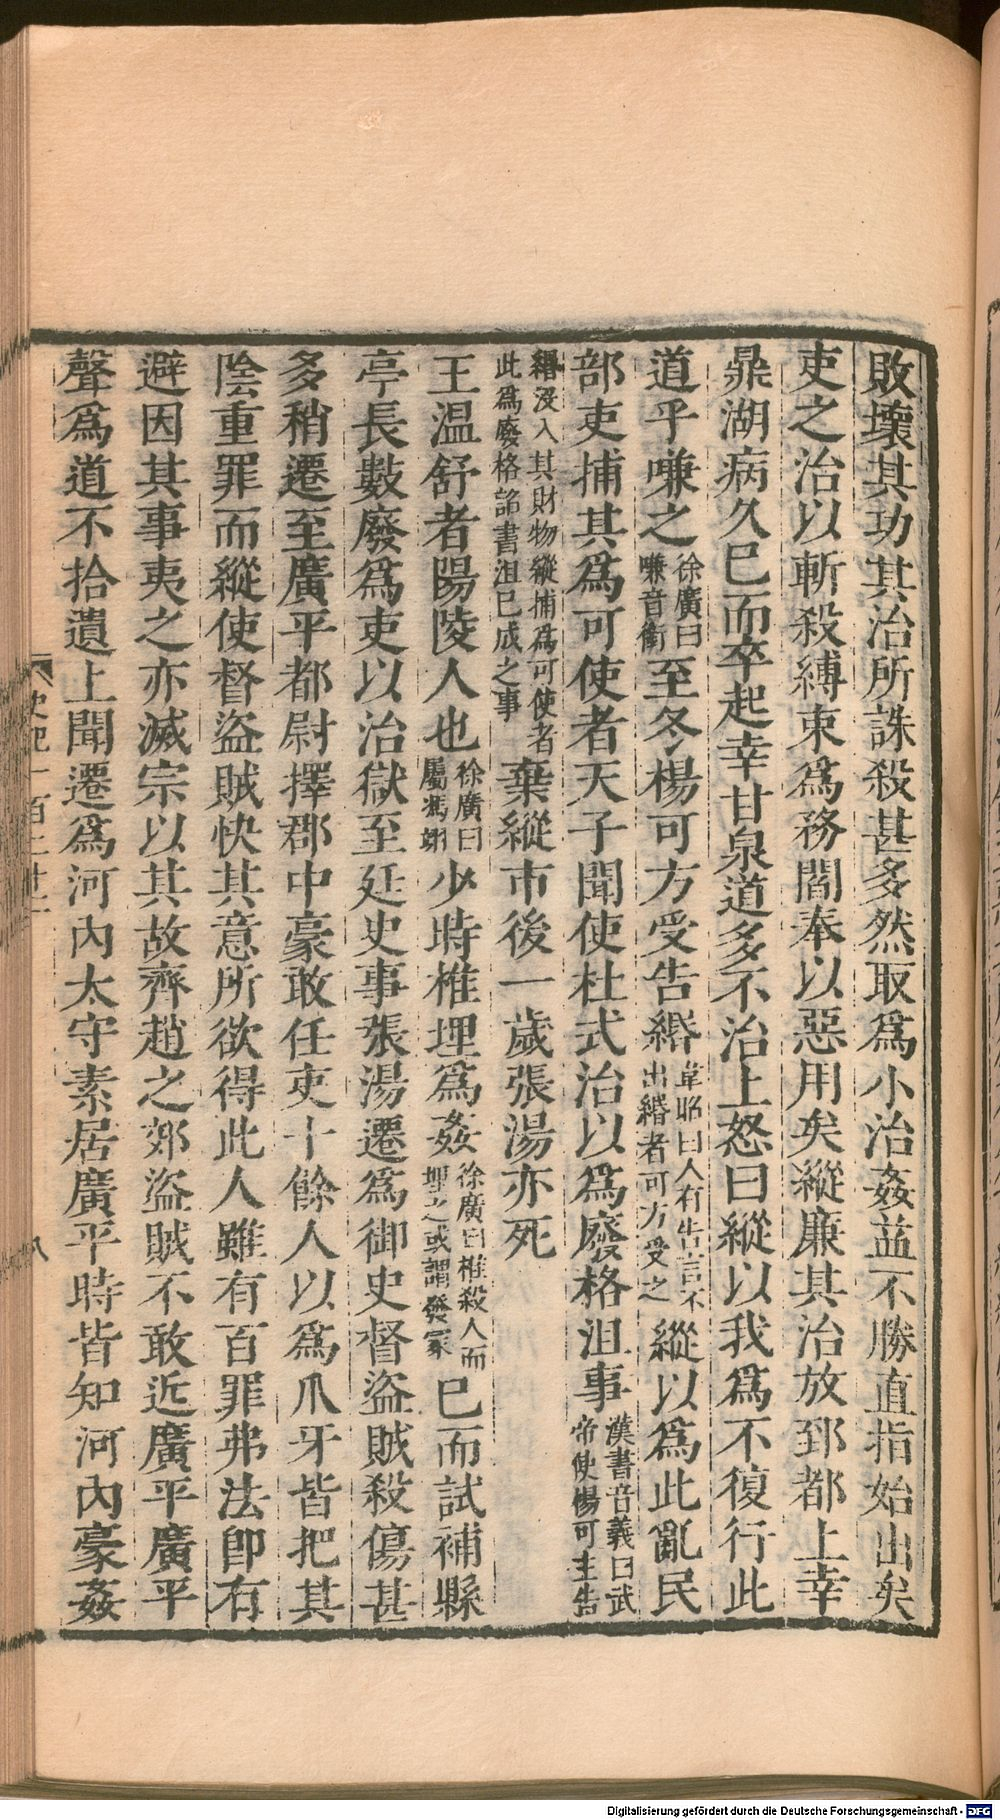 敗壞其功其治所誅殺甚多然取爲小治姦益不勝直指始出矣
吏之治以斬殺縛束爲務閻奉以惡用矣縱廉其治放郅都上幸
鼎湖病久已而卒起幸甘泉道多不治上怒曰縱以我爲不復行此
道乎嗛之徐廣曰嗛音銜至冬楊可方受告緡韋昭曰人有告言不出緡者可方受之縱以爲此亂民
部吏捕其爲可使者天子聞使杜式治以爲廢格沮事漢書音義曰武帝使楊可主告
緡沒入其財物縱捕爲可使者此爲廢格詔書沮已成之事棄縱市後一歲張湯亦死
王溫舒者陽陵人也徐廣曰屬馮翊少時椎埋爲姦徐廣曰椎殺人而埋之或謂發冢已而試補縣
亭長數廢爲吏以治獄至廷史事張湯遷爲御史督盜賊殺傷甚
多稍遷至廣平都尉擇郡中豪敢任吏十餘人以爲爪牙皆把其
陰重罪而縱使督盜賊快其意所欲得此人雖有百罪弗法卽有
避因其事夷之亦滅宗以其故齊趙之郊盜賊不敢近廣平廣平
聲爲道不拾遺上聞遷爲河內太守素居廣平時皆知河內豪姦
史記一百二十二
八
Digitalisierung gefördert durch die Deutsche Forschungsgemeinschaft - DFG